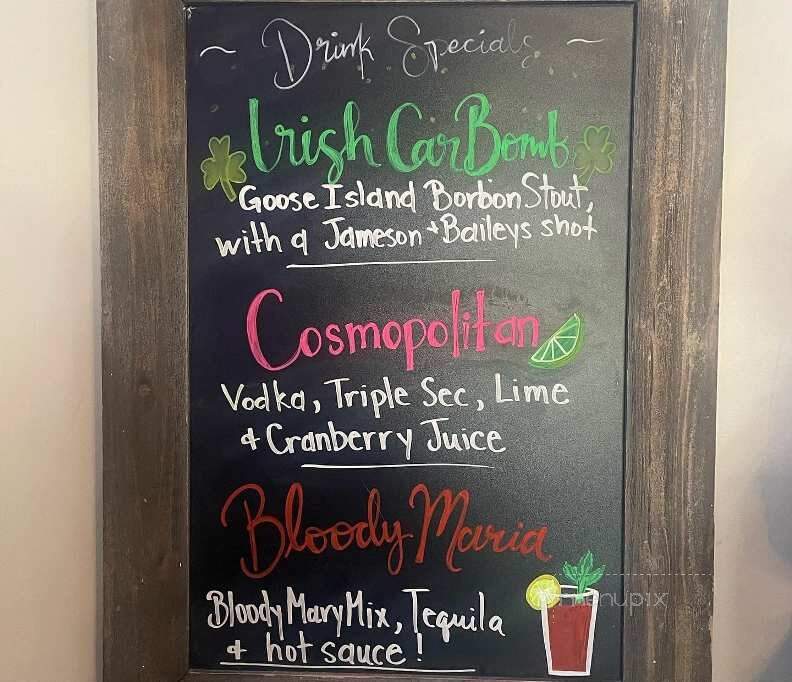 ~ Drink Specials ~
Irish Car Bomb
Goose Island Borbon Stout,
with a Jameson + Baileys shot
Cosmopolitan
Vodka, Triple Sec, Lime
& Cranberry Juice
Bloody Maria
Bloody Mary Mix, Tequila
& hot sauce!
menupix